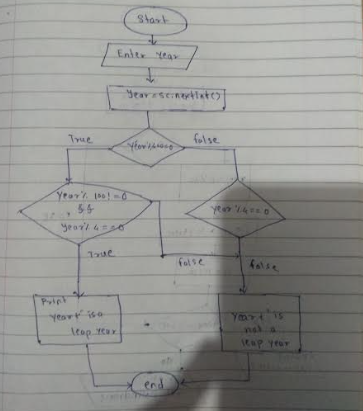 Start
Enter Year
Year=sc.nextInt()
True
false
Year%400==0
Year% 100!=0
&&
Year% 4==0
Year%4==0
True
false
false
Print
Year+" is a
leap year
Year+" is
not a
leap year
end